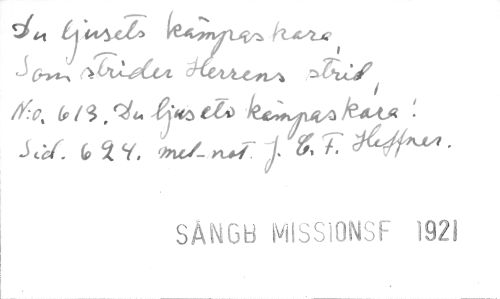 Du ljusets kämpaskara,
Som strider Herrens strid,
N:o. 613. Du ljusets kämpaskara!
Sid. 624. mel-not. J. C. F. Heffner.
SÅNGB MISSIONSF 1921